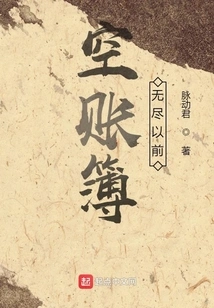 空账簿
无尽以前
脉动君
著